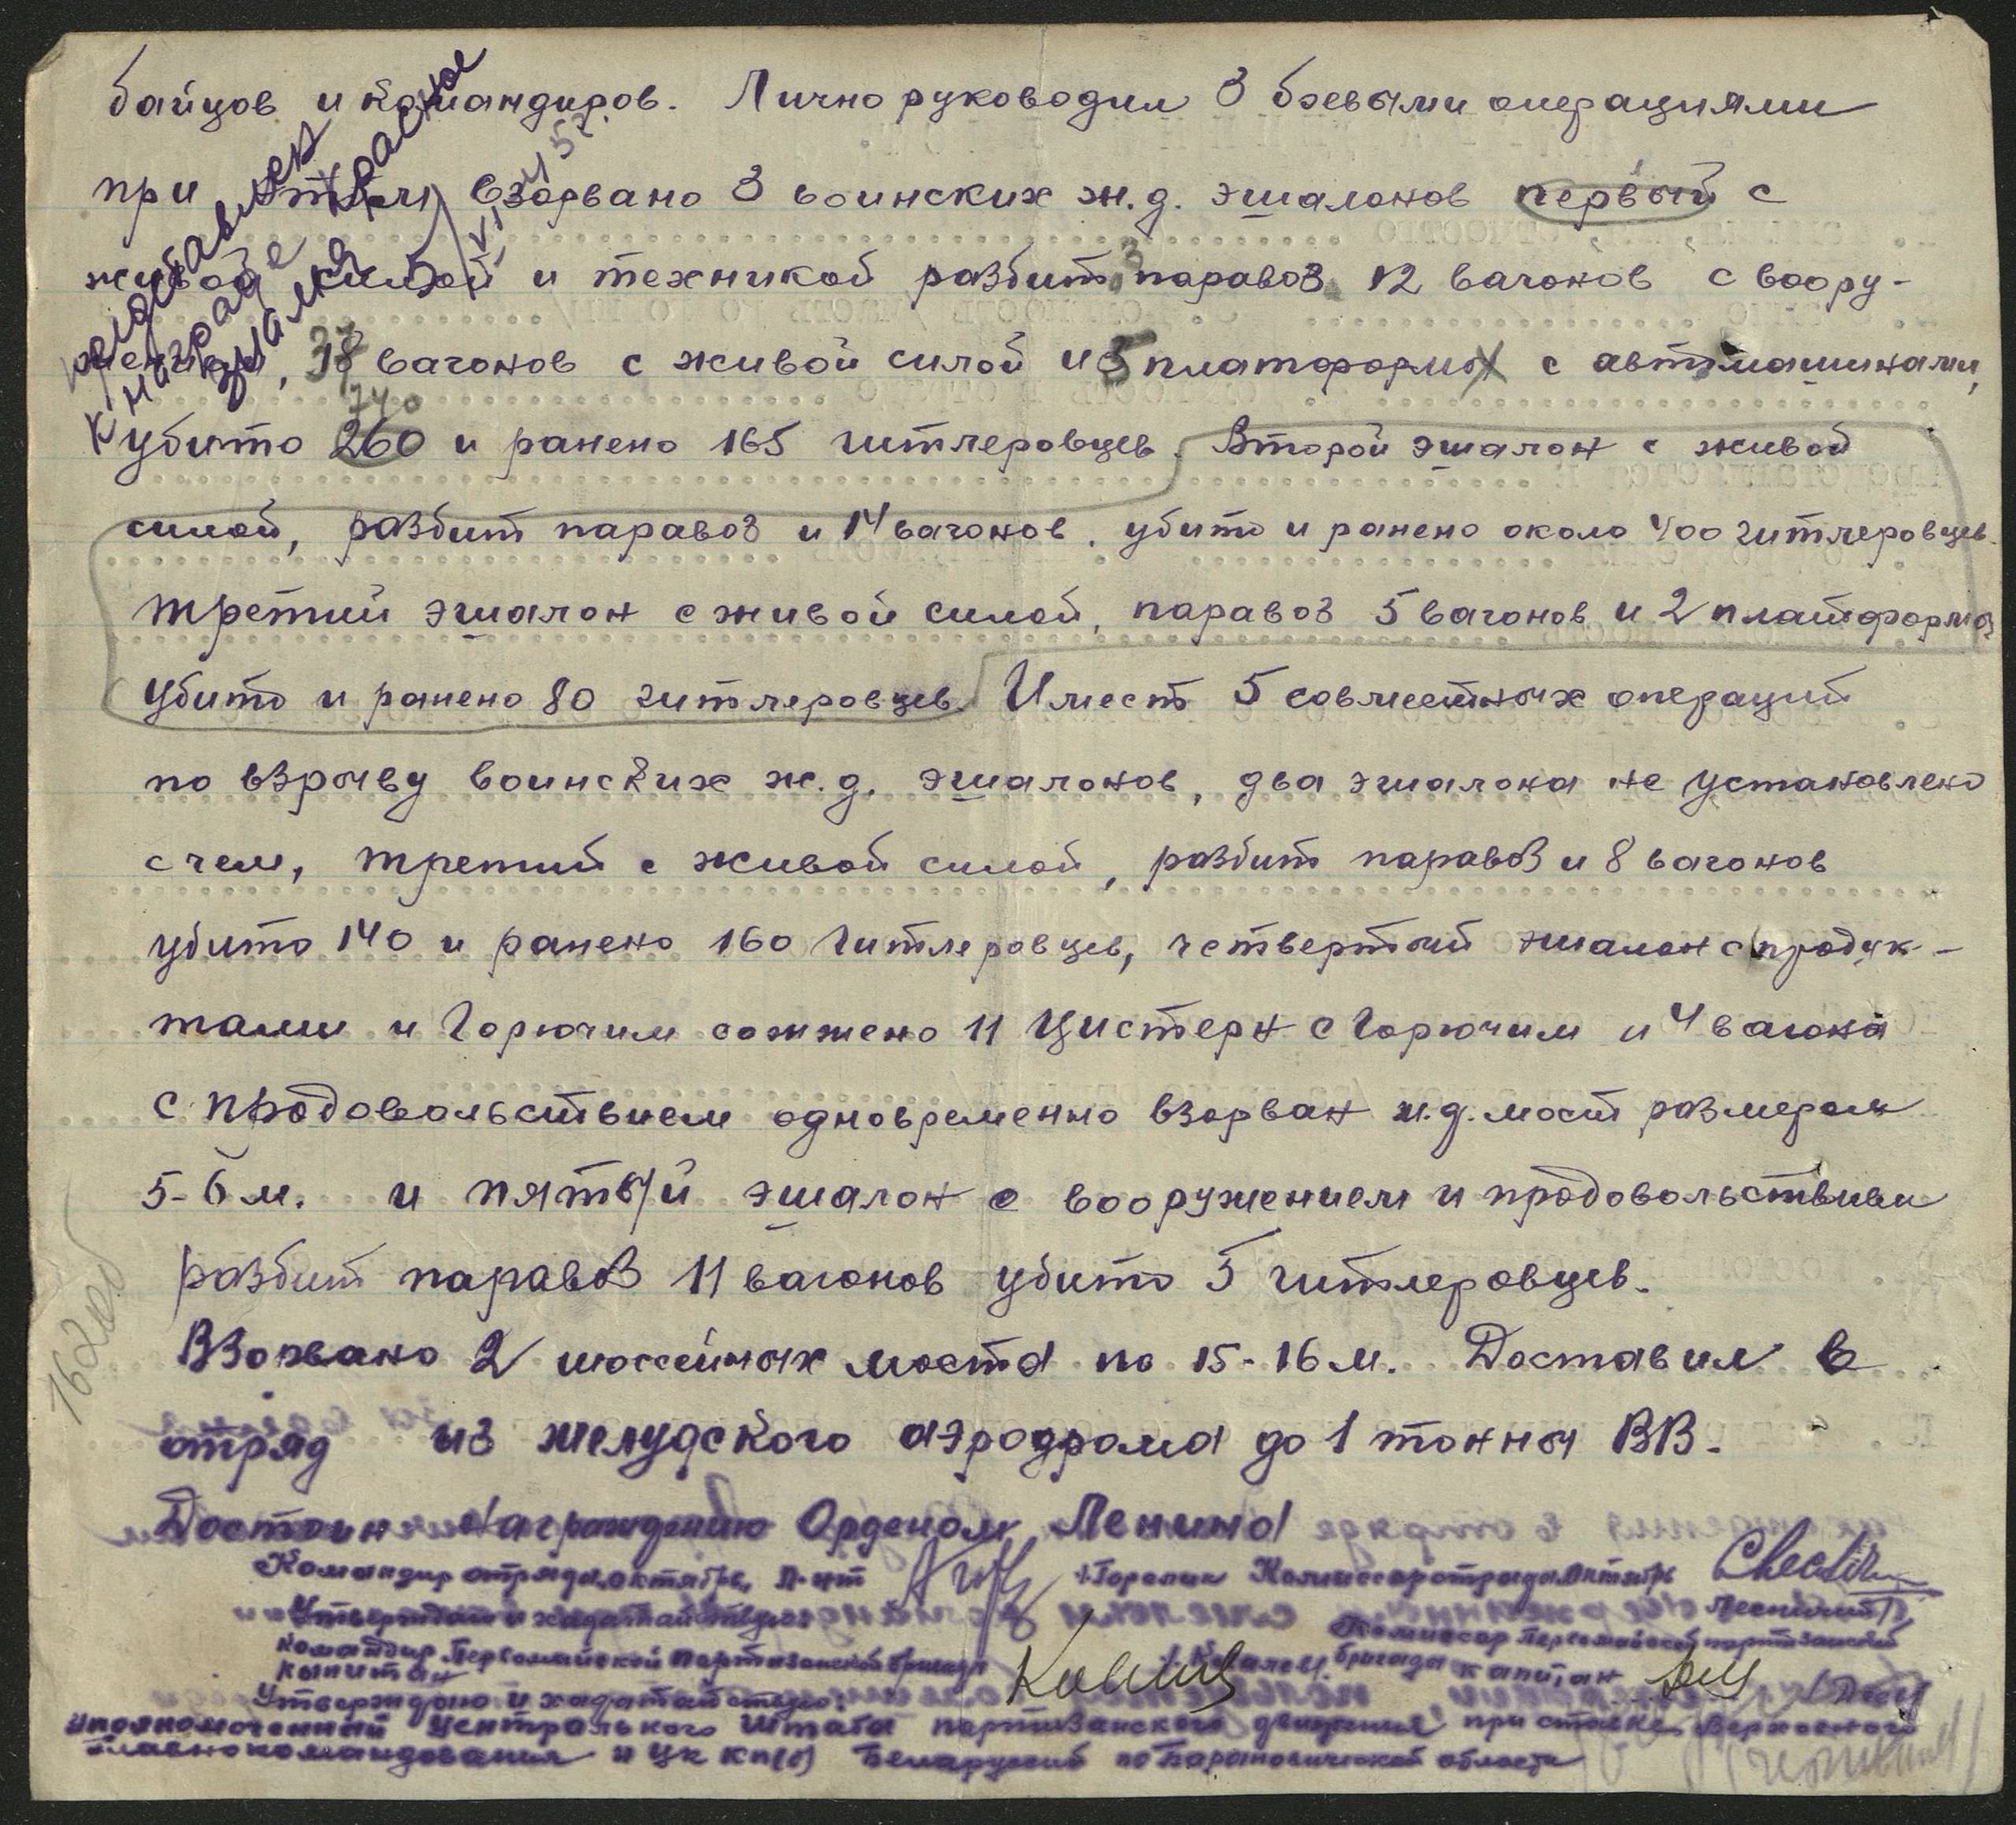 байцов и командиров. Лично руководил 3 боевыми операциями
при этом взорвано 3 воинских ж.д. эшалонов первый с
живой силой и техникой разбит паравоз 12 вагонов с воору-
жением, 18 вагонов с живой силой и 5 платформы с автомашинами,
37
740
убито 260 и ранено 165 гитлеровцев. Второй эшалон с живой
силой, разбит паравоз и 14 вагонов, убито и ранено около 400 гитлеровцев.
третий эшалон с живой силой, паравоз 5 вагонов и 2 платформы
убито и ранено 80 гитлеровцев. Имеет 5 совместных операций
по взрыву воинских ж.д. эшалонов, два эшалона не установлено
с чем, третий с живой силой, разбит паравоз и 8 вагонов
убито 140 и ранено 160 гитлеровцев, четвертый эшалон с продук-
тами и горючим сожжено 11 цистерн с горючим и 4 вагона
с продовольствием одновременно взорван ж.д. мост размером
5-6 м. и пятый эшалон с вооружением и продовольствием
разбит паравоз 11 вагонов убито 5 гитлеровцев.
Взорвано 2 шоссейных моста по 15-16 м. Доставил в
отряд из желудского аэродрома до 1 тонны ВВ.
Достоин награждению Орденом Ленина
Командир отряда Октябрь Л-нт Комиссар отряда Октябрь
Утверждаю и ходатайствую:
Командир Первомайской партизанской бригады Комиссар Первомайской партизанской
капитан бригады капитан
Утверждаю и ходатайствую:
Уполномоченный Центрального Штаба партизанского движения при ставке Верховного
Главнокомандования и ЦК КП(б) Беларуссии по Барановичской области
представлен
к награде
Красное
знамя